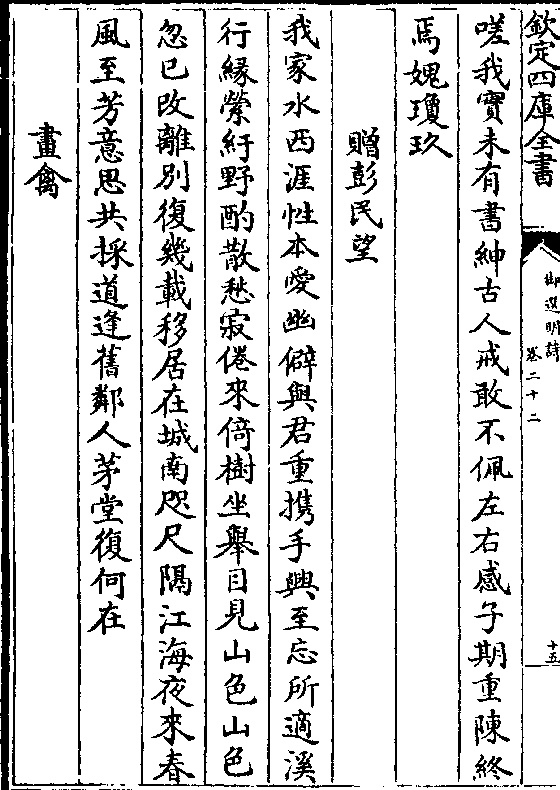 欽定四庫全書
御選明詩
卷二十二
十五
嗟我實未有書紳古人戒敢不佩左右感子期重陳終
焉媿瓊玖
贈彭民望
我家水西涯性本愛幽僻與君重携手興至忘所適溪
行緣縈紆野酌散愁寂倦來倚樹坐舉目見山色山色
忽已改離別復幾載移居在城南咫尺隔江海夜來春
風至芳意思共採道逢舊鄰人茅堂復何在
畫禽